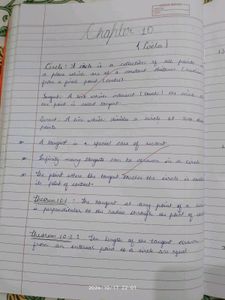 Chapter 10
(Circles)
Circle: A circle is a collection of all points in
a plane which are at a constant distance (radius)
from a fixed point (centre)
Tangent: A line which intersect (touch) the circle at
the point is called tangent.
Secant: A line which divides a circle at two
points.
A tangent is a special case of secant.
Infinity many tangents can be drawn in a circle
The point where the tangent touches the circle is called
it point of contact.
Theorem 10.1: The tangent at any point of a circle
is perpendicular to the radius through the point of
Theorem 10.2: The length of the tangent drawn
from an external point to a circle are equal.
2024.10.17 22:01